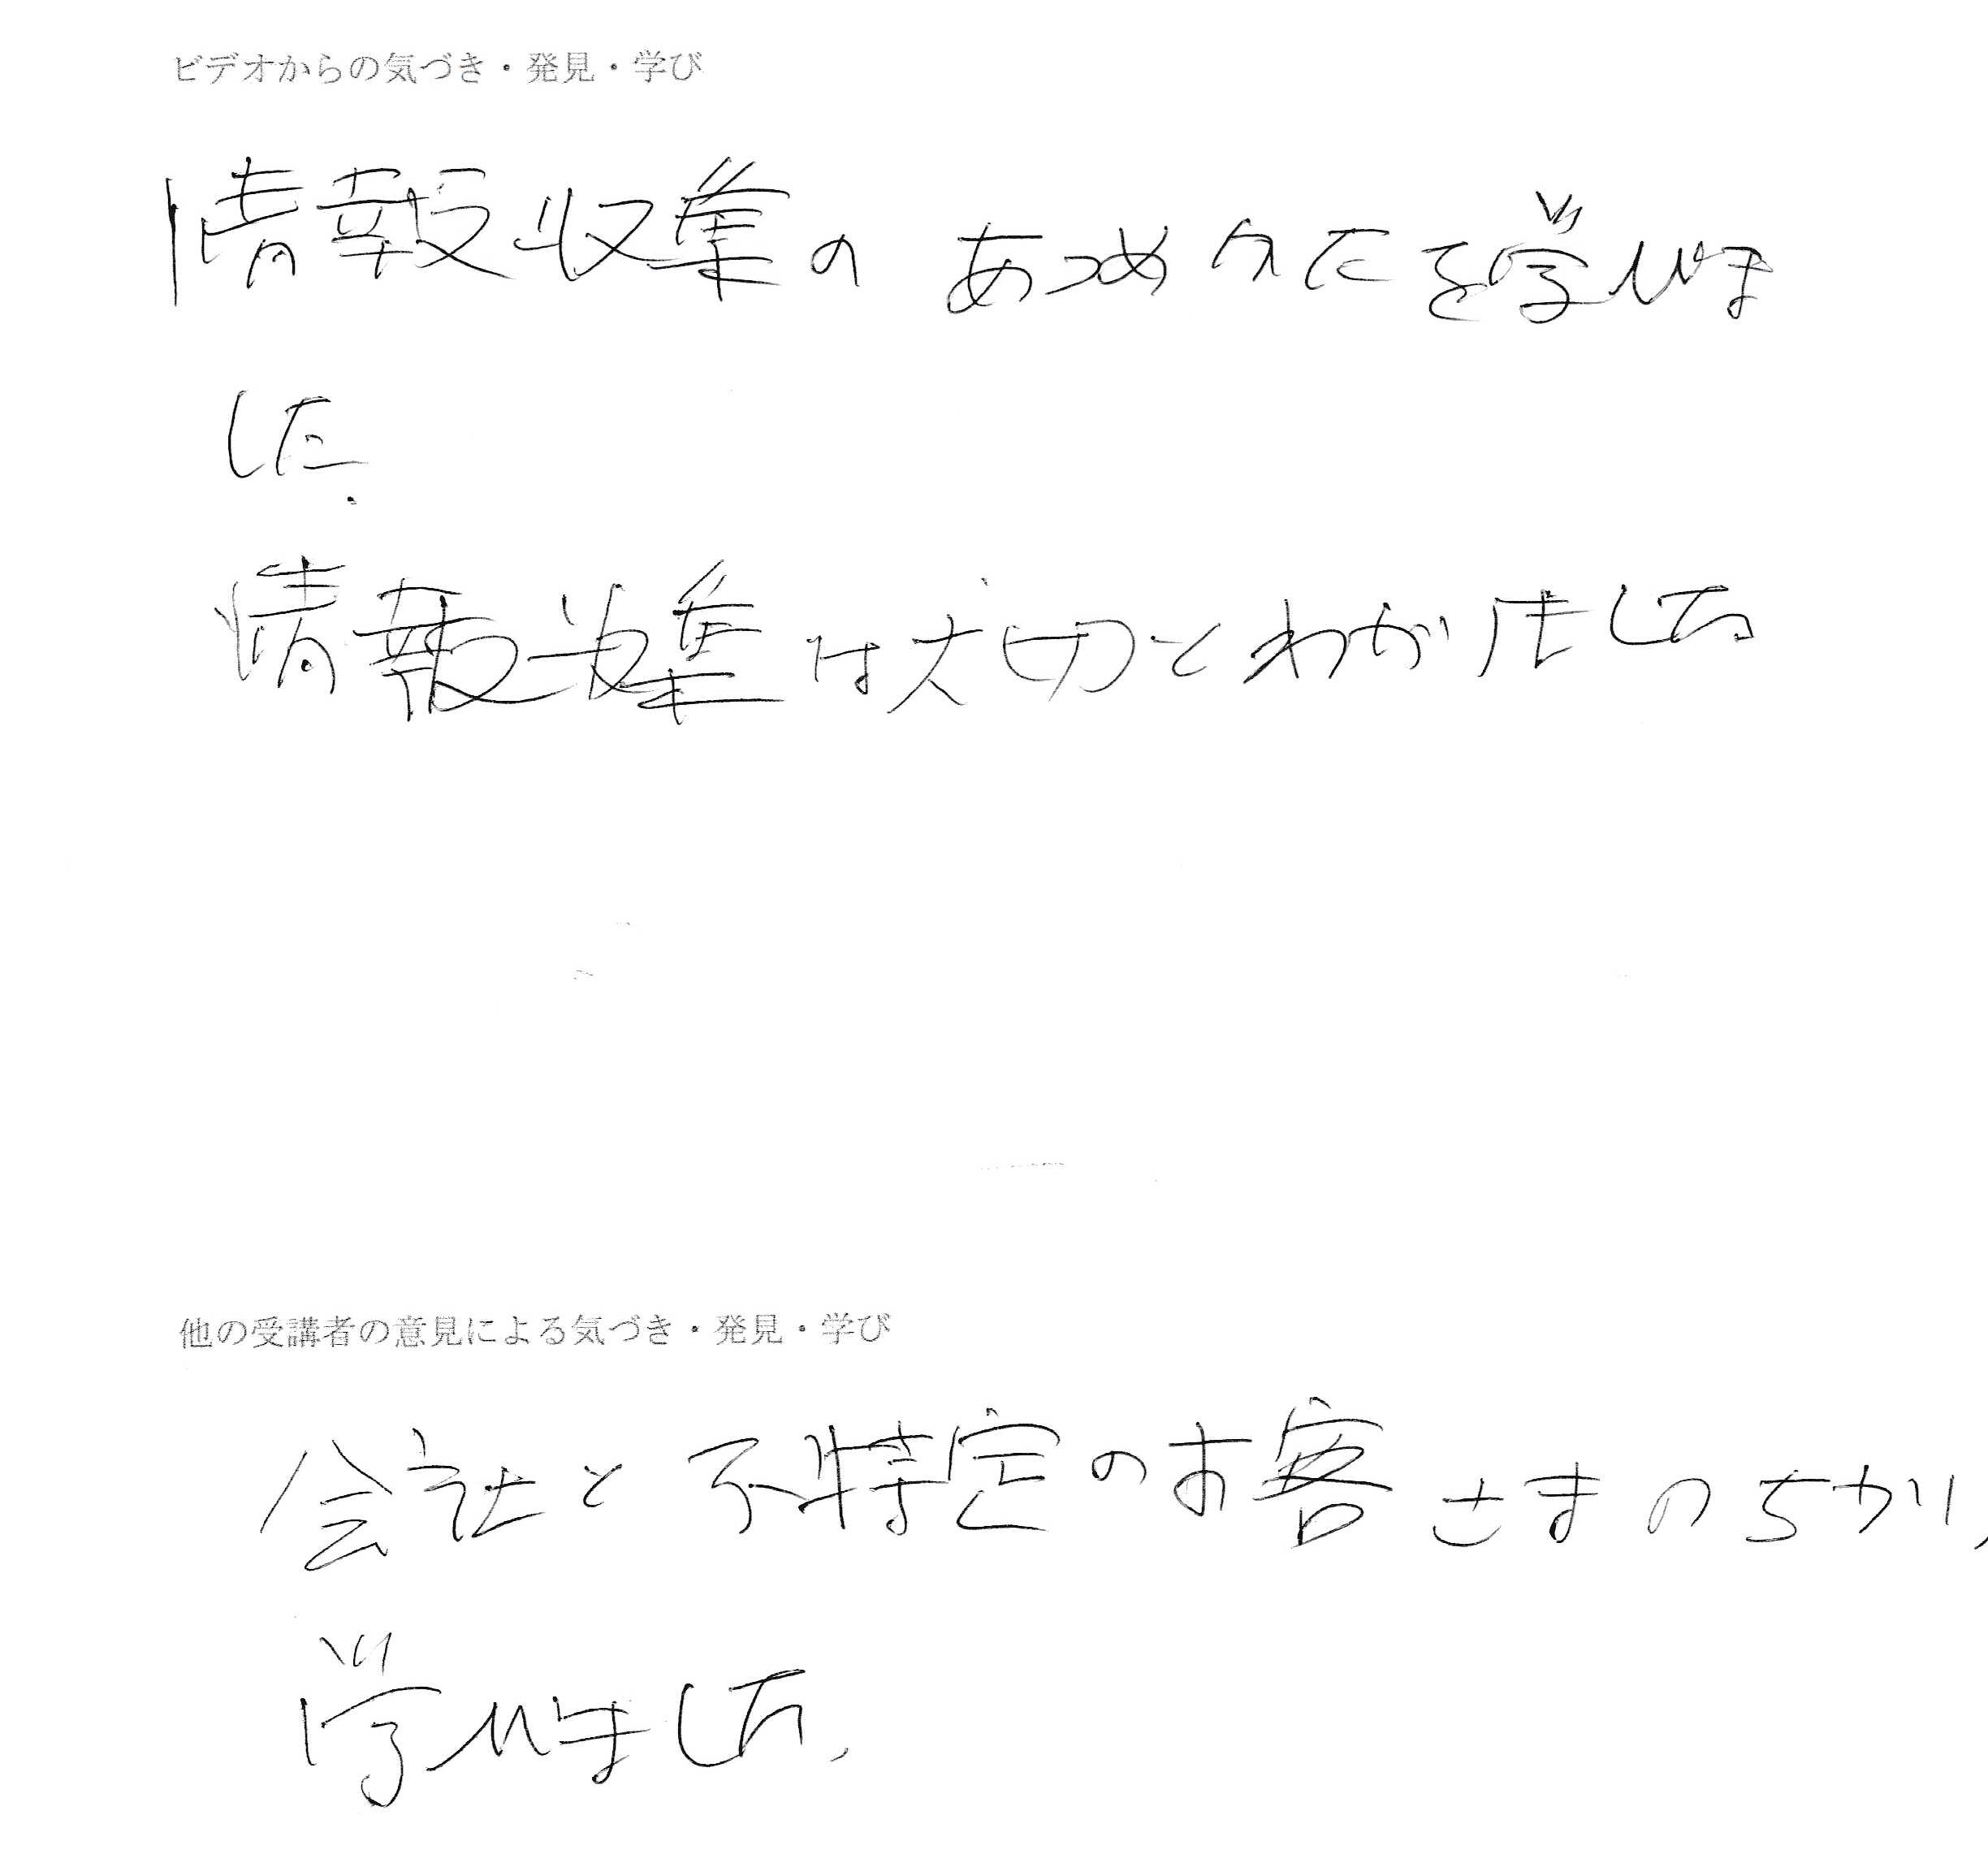 ビデオからの気づき・発見・学び
情報収集の あつめかたを学びま
した.
情報収集は大切とわかりました
他の受講者の意見による気づき・発見・学び
会社と不特定のお客さまのちがい
学びました.